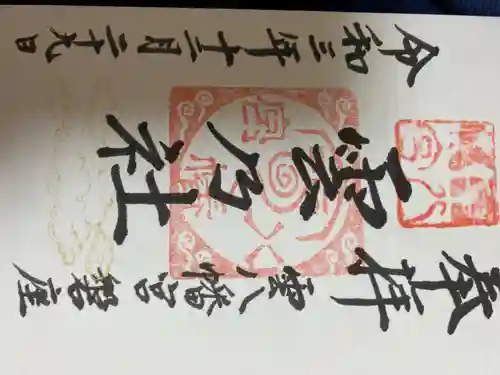 奉拝
雲八幡宮磐座
雲乃社
令和三年十二月二十九日